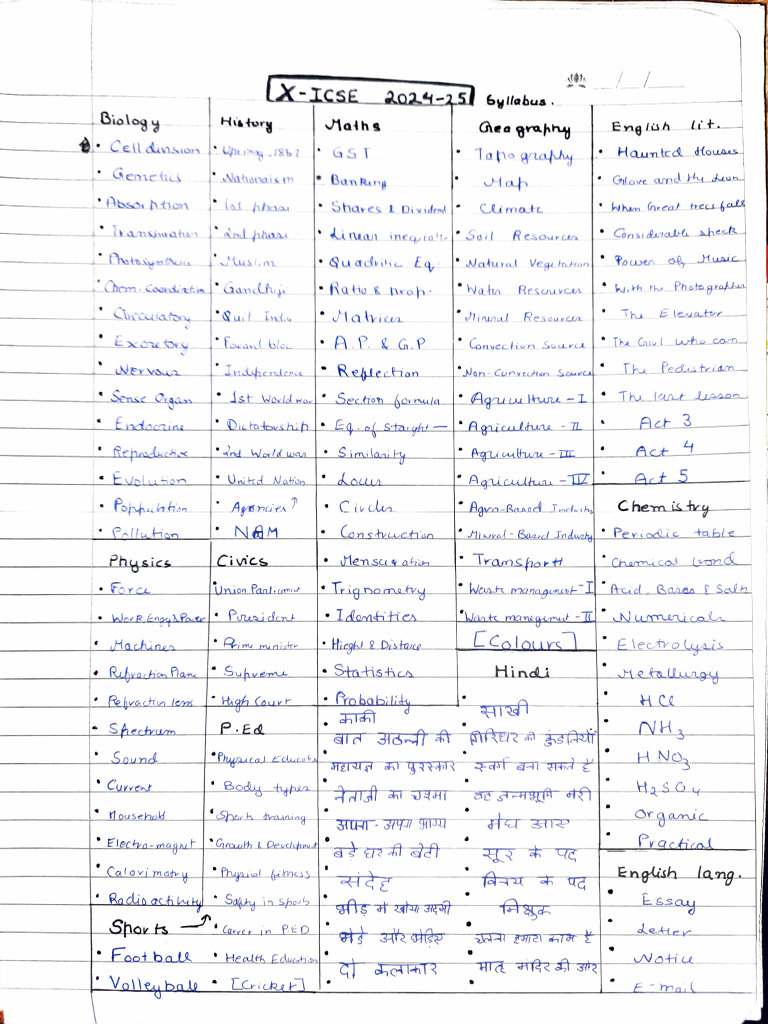 X-ICSE 2024-25 Syllabus.
Biology
• Cell division
• Genetics
• Absorption
• Transpiration
• Photosynthesis
• Chem. Coordination
• Circulatory
• Excretory
• Nervous
• Sense Organ
• Endocrine
• Reproductive
• Evolution
• Population
• Pollution
Physics
• Force
• Work, Engy & Power
• Machines
• Refraction Plane
• Refraction lens
• Spectrum
• Sound
• Current
• Household
• Electro-magnet
• Calorimatry
• Radioactivity
Sports →
• Football
• Volleyball
History
• Uprising-1857
• Nationalism
• 1st phase
• 2nd phase
• Muslim
• Gandhiji
• Quit Indu
• Foward bloc
• Independence
• 1st World war
• Dictatorship
• 2nd World war
• United Nation
• Agencies ↑
• NAM
Civics
• Union Parliament
• President
• Prime minister
• Supreme
• High Court
P.Ed
• Physical Education
• Body types
• Sports training
• Growth & Development
• Physical fitness
• Safty in Sports
• Career in PED
• Health Education
• [Cricket]
Maths
• GST
• Banking
• Shares & Dividend
• Linear inequality
• Quadritic Eq.
• Ratio & prop.
• Matrices
• A.P. & G.P
• Reflection
• Section formula
• Eq. of Staight —
• Similarity
• Locus
• Circles
• Construction
• Mensuration
• Trignometry
• Identities
• Hieght & Distance
• Statistics
• Probability
• काकी
• बात अठन्नी की
• महायज्ञ का पुरस्कार
• नेताजी का चश्मा
• अपना-अपना भाग्य
• बड़े घर की बेटी
• संदेह
• भीड़ में खोया आदमी
• भेड़े और भेड़िए
• दो कलाकार
Geography
• Topography
• Map
• Climate
• Soil Resources
• Natural Vegetation
• Water Resources
• Mineral Resources
• Convection Source
• Non-Convection Source
• Agriculture - I
• Agriculture - II
• Agriculture - III
• Agriculture - IV
• Agro-Based Industry
• Mineral-Based Industry
• Transport
• Waste management - I
• Waste management - II
[Colours]
Hindi
• साखी
• गिरिधर की कुंडलियाँ
• स्वर्ग बना सकते है
• वह जन्मभूमि मेरी
• मेघ आए
• सूर के पद
• विनय के पद
• भिक्षुक
• चलना हमारा काम है
• मातृ मंदिर की ओर
English lit.
• Haunted Houses
• Glove and the Lion
• When Great trees fall
• Considerable speck
• Power of Music
• With the Photographer
• The Elevator
• The Girl who can
• The Pedistrian
• The last lesson
• Act 3
• Act 4
• Act 5
Chemistry
• Periodic table
• Chemical bond
• Acid, Bases & Salts
• Numericals
• Electrolysis
• Metallurgy
• HCl
• NH3
• HNO3
• H2SO4
• Organic
• Practical
English lang.
• Essay
• Letter
• Notice
• E-mail